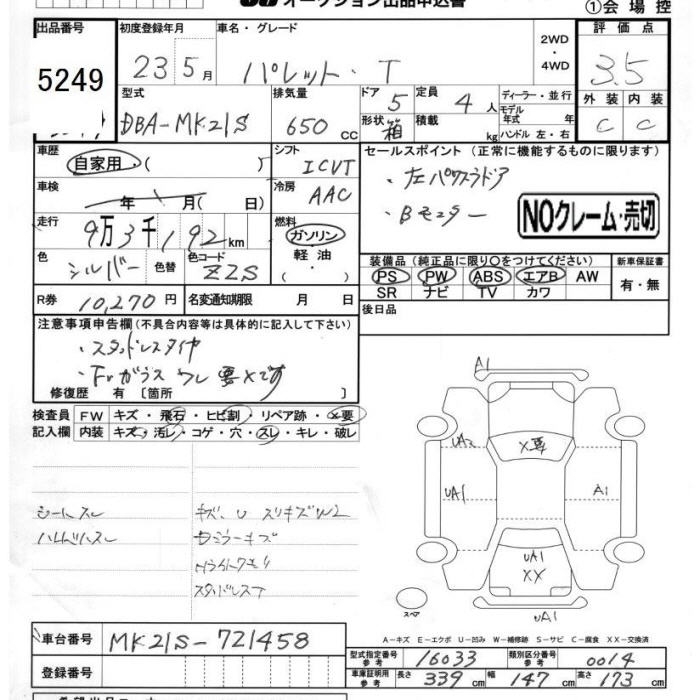 オークション出品申込書
①会場控
出品番号
5249
初度登録年月
23 5月
車名・グレード
パレット・T
2WD
・
4WD
評価点
3.5
外装 内装
C C
型式
DBA-MK21S
排気量
650 CC
ドア 5
形状 箱
定員 4人
積載 kg
ディーラー・並行
モデル
年式 年
ハンドル 左・右
車歴
自家用・( )
シフト
ICVT
車検
年 月(日)
冷房
AAC
走行
9万3千192km
燃料
ガソリン
・
軽油
・
色
シルバー
色替
色コード
ZZS
R券 10,270円
名変通知期限 月 日
セールスポイント (正常に機能するものに限ります)
・左パワスラドア
・Bモニター
NOクレーム・売切
装備品(純正品に限り○をつけてください)
PS PW ABS エアB AW
SR ナビ TV カワ
新車保証書
有・無
後日品
注意事項申告欄(不具合内容等は具体的に記入して下さい)
・スタッドレスタイヤ
・Frガラス ワレ 要×です
修復歴 有〔箇所 〕
検査員 FW キズ・飛石・ヒビ割・リペア跡・×要
記入欄 内装 キズ・汚レ・コゲ・穴・スレ・キレ・破レ
シートスレ
ハンドルスレ
キズ、U スリキズW2
Dミラーキズ
Hライトクモリ
スタッドレスT
A1
UA2
×要
UA1
A1
UA1
XX
スペア
UA1
A-キズ E-エクボ U-凹み W-補修跡 S-サビ C-腐食 XX-交換済
車台番号 MK21S-721458
登録番号
型式指定番号
参考
16033
類別区分番号
参考
0014
車庫証明用
参考
長さ 339cm 幅 147cm 高さ 173cm